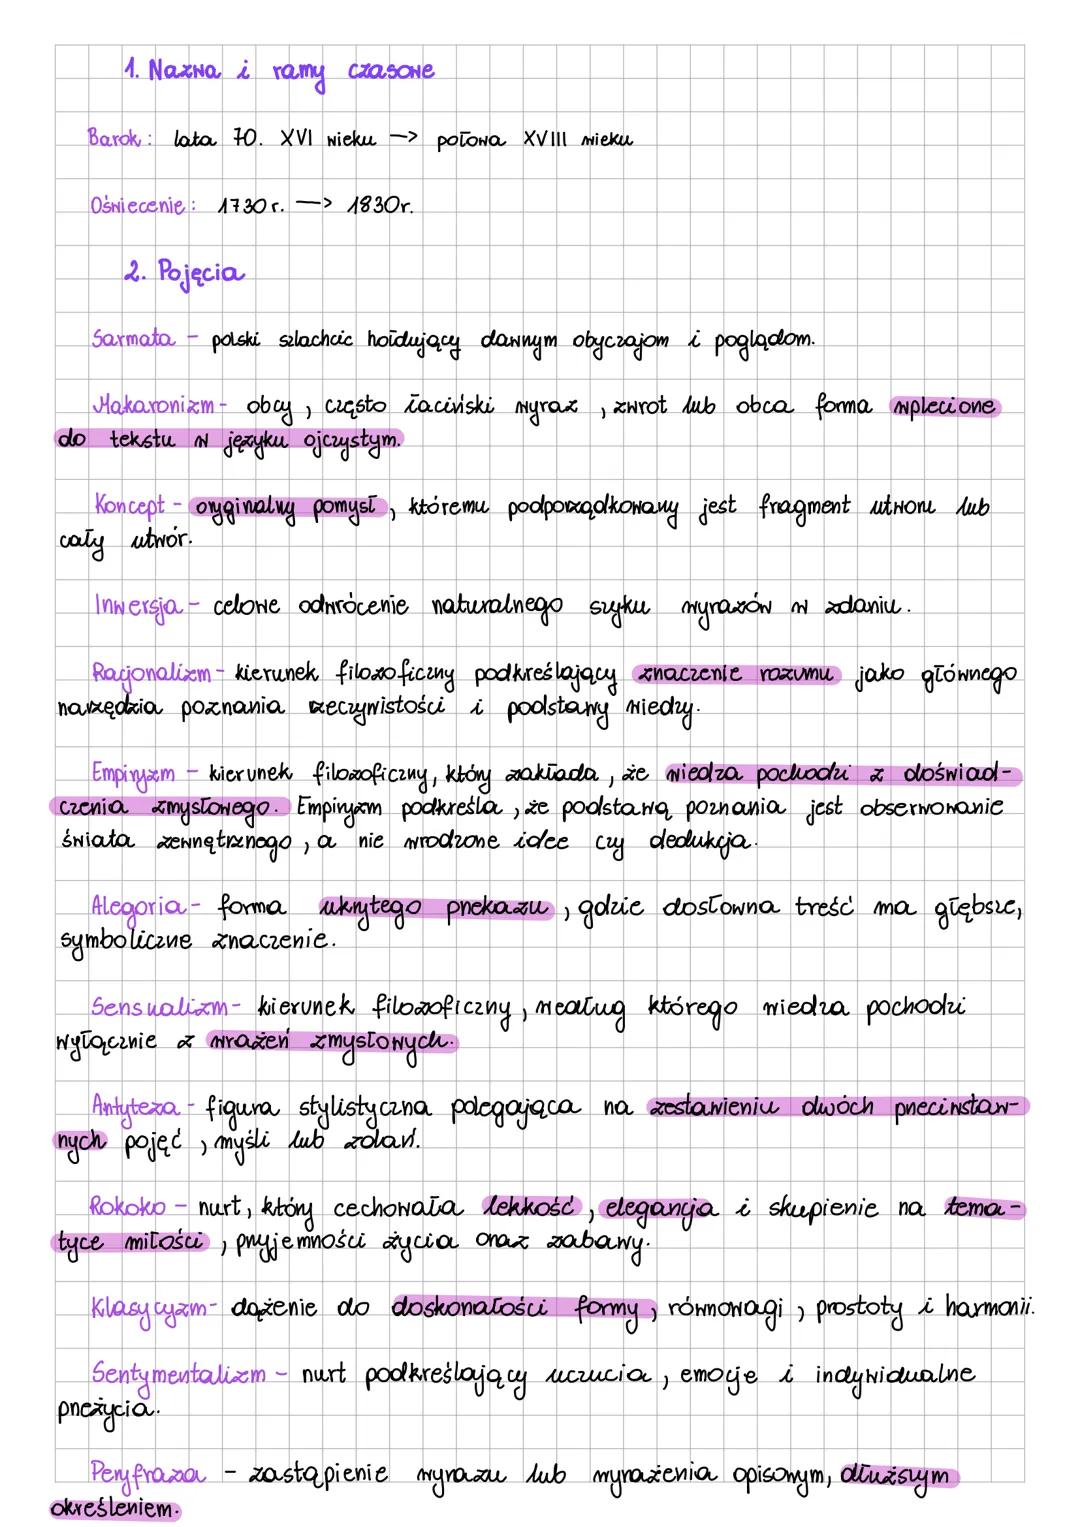 1. Nazwa i ramy czasowe
Barok: lata 70. XVI wieku -> połowa XVIII wieku
Oświecenie: 1730 r. -> 1830r.
2. Pojęcia
Sarmata - polski szlachcic hołdujący dawnym obyczajom i poglądom.
Makaronizm - obcy, często łaciński wyraz, zwrot lub obca forma wplecione
do tekstu w języku ojczystym.
Koncept - oryginalny pomysł, któremu podporządkowany jest fragment utworu lub
cały utwór.
Inwersja - celowe odwrócenie naturalnego szyku wyrazów w zdaniu.
Racjonalizm - kierunek filozoficzny podkreślający znaczenie rozumu jako głównego
narzędzia poznania rzeczywistości i podstawy wiedzy.
Empiryzm - kierunek filozoficzny, który zakłada, że wiedza pochodzi z doświad-
czenia zmysłowego. Empiryzm podkreśla, że podstawą poznania jest obserwowanie
świata zewnętrznego, a nie wrodzone idee czy dedukcja.
Alegoria - forma ukrytego przekazu, gdzie dosłowna treść ma głębsze,
symboliczne znaczenie.
Sensualizm - kierunek filozoficzny, według którego wiedza pochodzi
wyłącznie z wrażeń zmysłowych.
Antyteza - figura stylistyczna polegająca na zestawieniu dwóch przeciwstaw-
nych pojęć, myśli lub zdań.
Rokoko - nurt, który cechowała lekkość, elegancja i skupienie na tema-
tyce miłości, przyjemności życia oraz zabawy.
Klasycyzm - dążenie do doskonałości formy, równowagi, prostoty i harmonii.
Sentymentalizm - nurt podkreślający uczucia, emocje i indywidualne
przeżycia.
Peryfraza - zastąpienie wyrazu lub wyrażenia opisowym, dłuższym
określeniem.